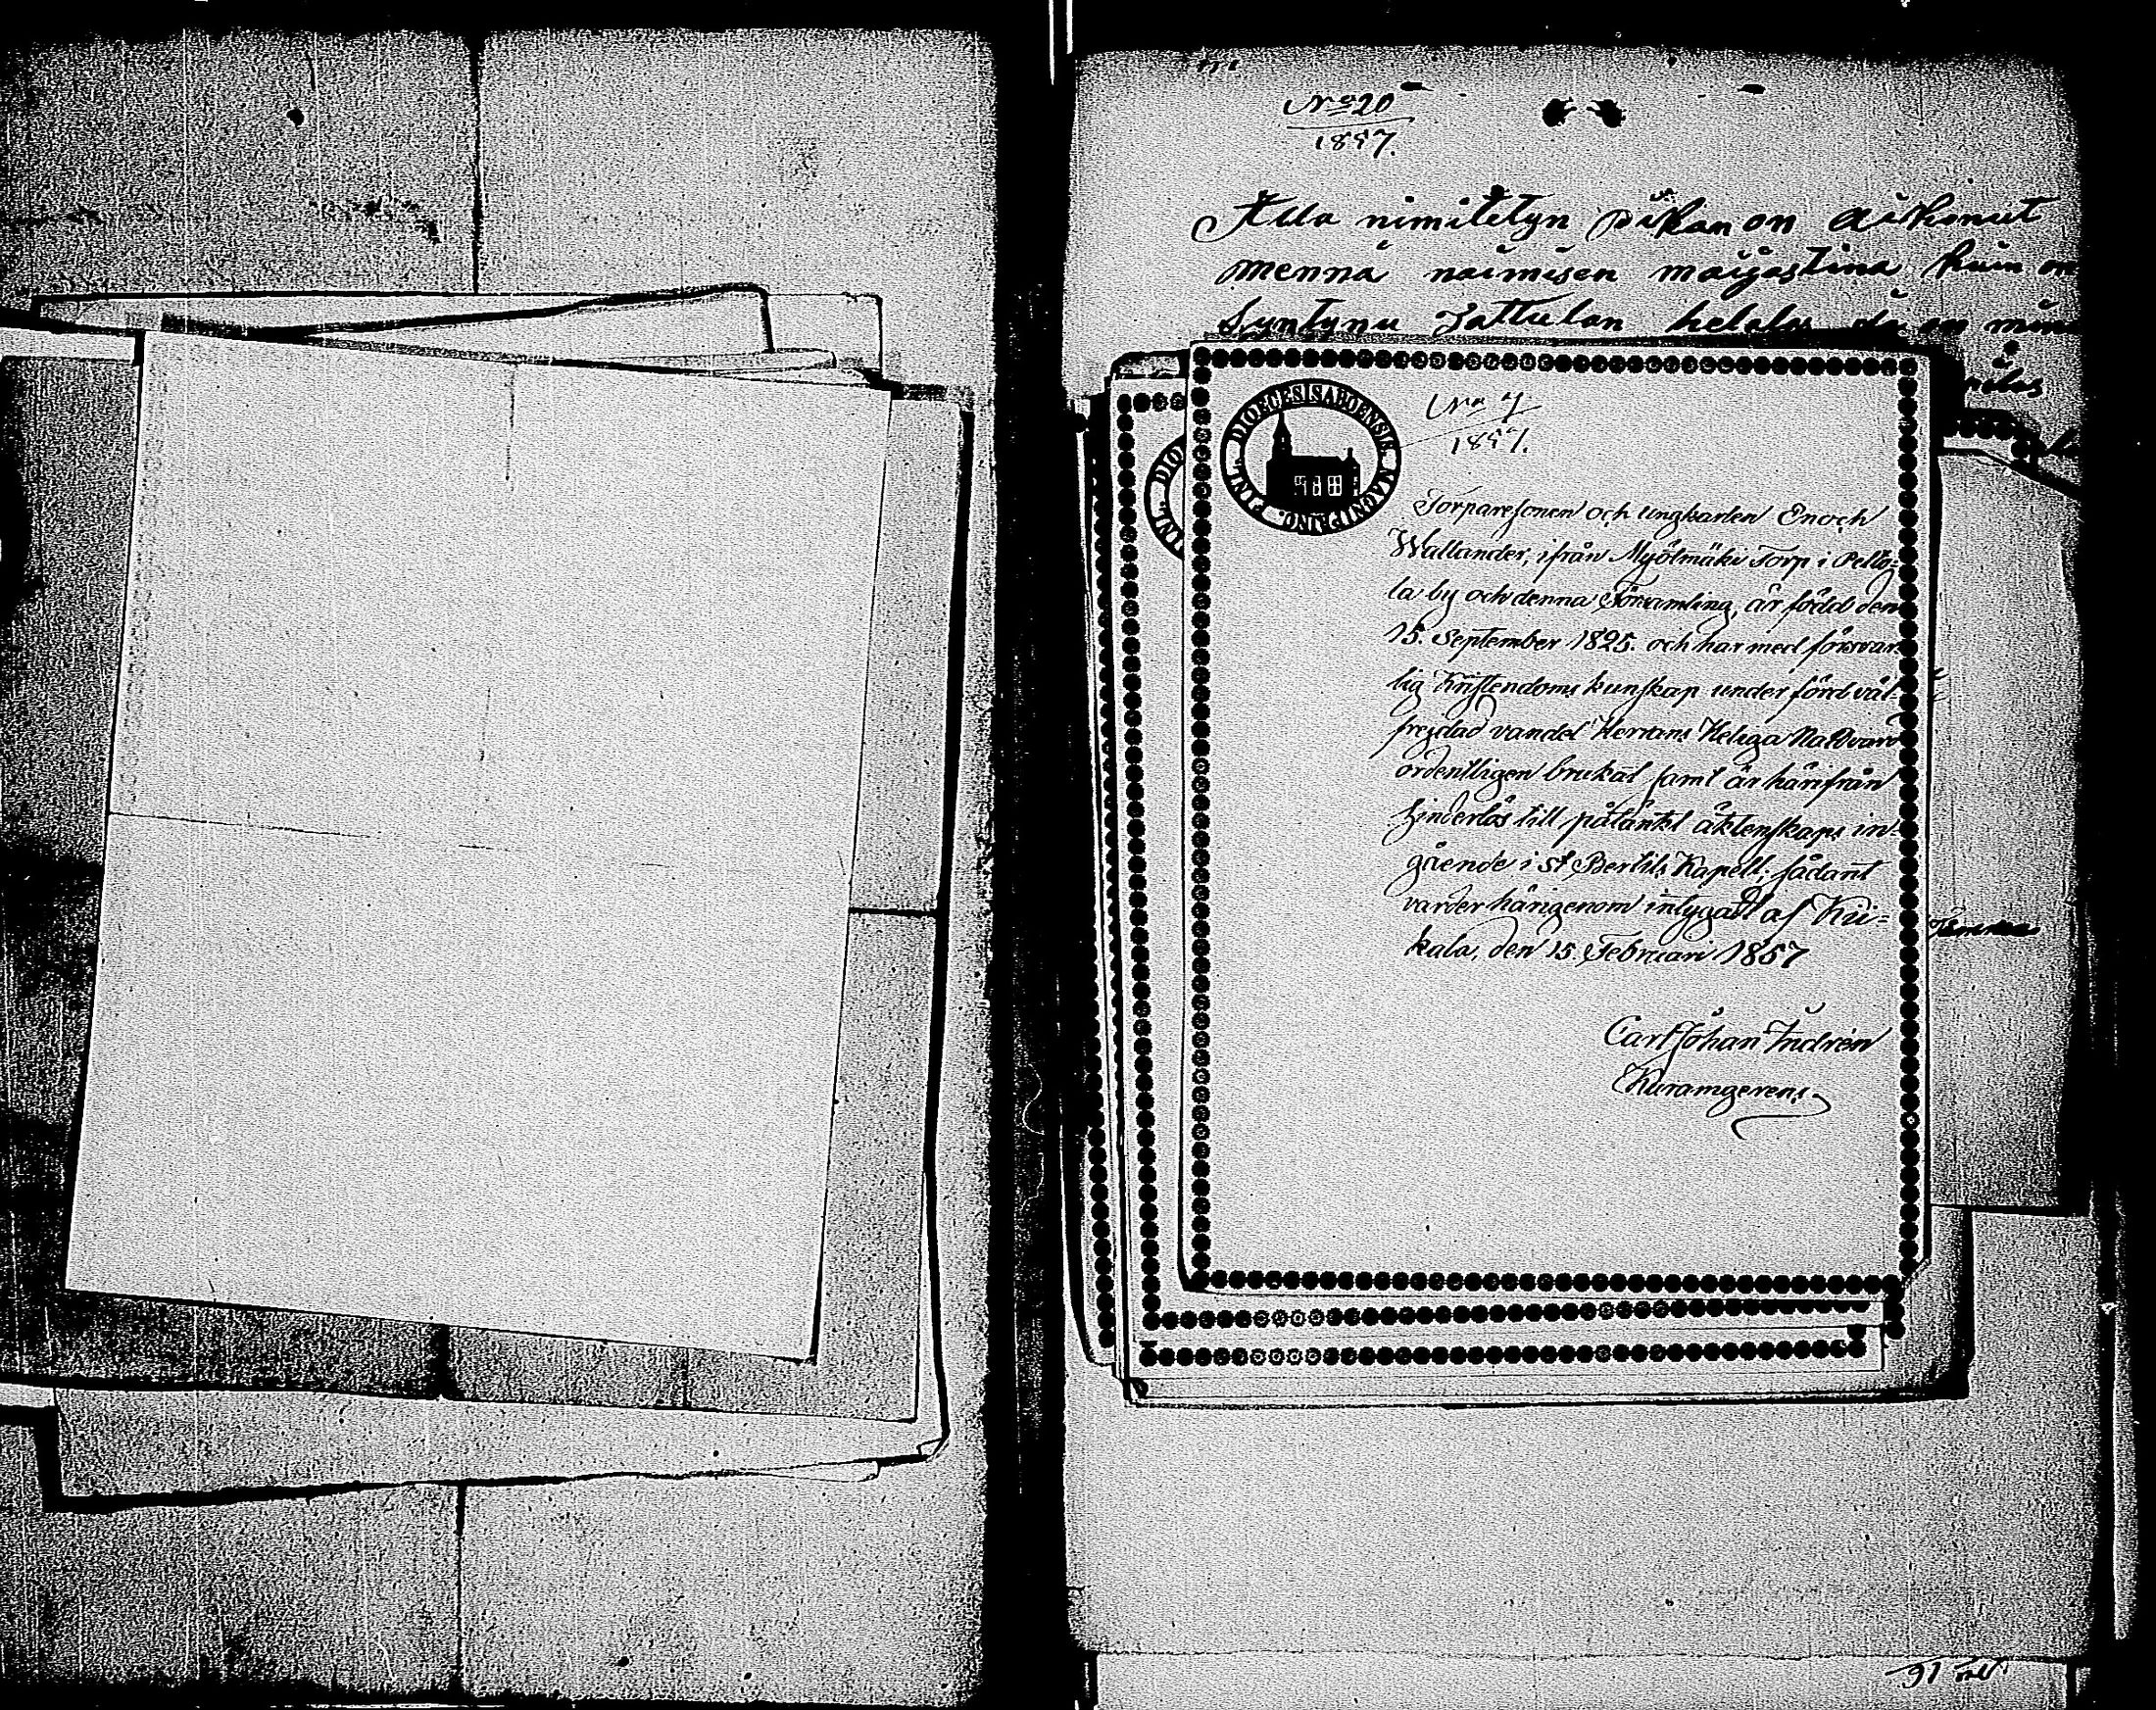 No 20
1857.
Alla nimitetyn pikan on aikonut
mennä naimisen maijastina kuin on
Syntynu Jattulan
No 7
1857.
DIOECESIS ABOENSIS MAGNI PRINC. FINL.
Torparesonen och ungkarlen Enoch
Wallander, ifrån Myölmäki Torp i Pelto-
la by och denna Församling, är född den
15. September 1825. och har med försvar-
lig Kristendoms kunskap under förd väl-
frejdad vandel Herrans Heliga Nattvard
ordentligen brukat samt är härifrån
hinderlös till påtänkt äktenskaps in-
gående i St Bertils Kapell; sådant
varder härigenom intygadt af Kii-
kala, den 15 Februari 1857
Carl Johan Indrén
Kuramgerens.
DIO
INL.